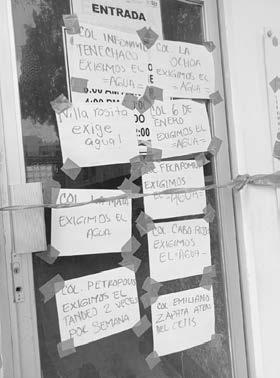 ENTRADA
COL INFONAVIT
TENECHACO
EXIGIMOS EL
=AGUA=
COL LA
OCHOA
EXIGIMOS EL
=AGUA=
Villa rosita
exige
agua!
COL 6 DE
ENERO
EXIGIMOS EL
=AGUA=
2:00
EXIGIMOS EL
AGUA
COL FECAPOMEX
EXIGIMOS EL
=AGUA=
COL CABO ROJO
EXIGIMOS
EL=AGUA=
COL PETROPOLIS
EXIGIMOS EL
TANDEO 2 VECES
POR SEMANA
COL EMILIANO
ZAPATA ATRAS
DEL CETIS